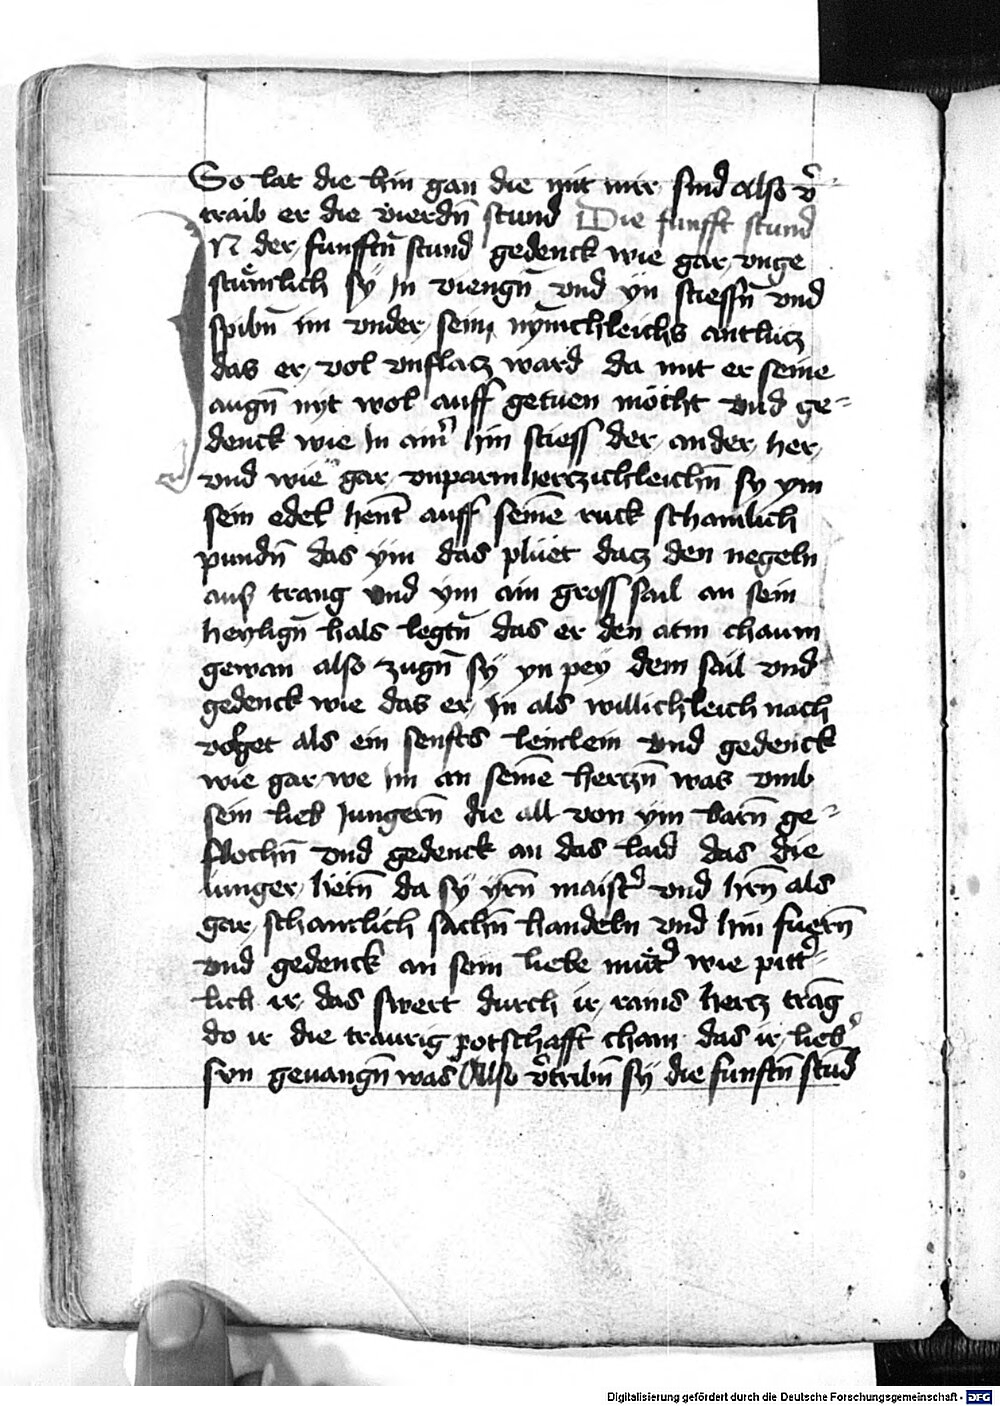 So lat die hin gan die mit mir sind Also v̄-
traib er die vierdn̄ stund Die funfft stund
IN der funfftn̄ stund gedenck wie gar vnge
stuͤmlich sÿ In viengn̄ vnd yn stiessn̄ vnd
spibn̄ im vnder sein mynichleichs antlucz
das er vol vnflacz ward da mit er seine
augn̄ nyt wol auff getuen möcht vnd ge=
denck wie In ainr̄ hin stiess der ander her
vnd wie gar vnparmherczichleichn̄ sy ym
sein edel hent auff seinē ruck schamlich
pundn̄ das ÿm das plüet dacz den negeln
aus trang vnd ym ain gross sail an sein
heylign̄ hals legtn̄ das er den atm chaum
gewan also zugn̄ sÿ yn peÿ dem sail vnd
gedenck wie das er In als willichleich nach
volget als ein senfts lemlein vnd gedenck
wie gar we im an seinē herczn̄ was vmb
sein lieb Jungern̄ die all von ym warn̄ ge=
flochn̄ vnd gedenck an das laid das die
iunger hietn̄ da sÿ yrn̄ maistr̄ vnd hrn̄ als
gar schamlich sachn̄ handeln vnd hin fuern̄
vnd gedenck an sein liebe muͤtr̄ wie pittr̄=
lich ir das swert durch ir rains hercz trāg
do ir die traurig potschafft cham das ir lieb̄
sun geuangn̄ was Also v̄tribn̄ sÿ die funftn̄ stūd
Digitalisierung gefördert durch die Deutsche Forschungsgemeinschaft - DFG